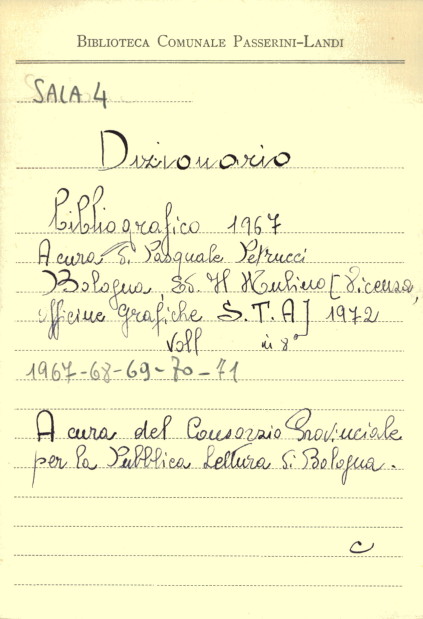 BIBLIOTECA COMUNALE PASSERINI-LANDI
SALA 4
Dizionario
bibliografico 1967
A cura di Pasquale Petrucci
Bologna, Ed. Il Mulino [Vicenza,
officine Grafiche S.T.A] 1972
Voll in 8°
1967-68-69-70-71
A cura del Consorzio Provinciale
per la Pubblica Lettura di Bologna.
C